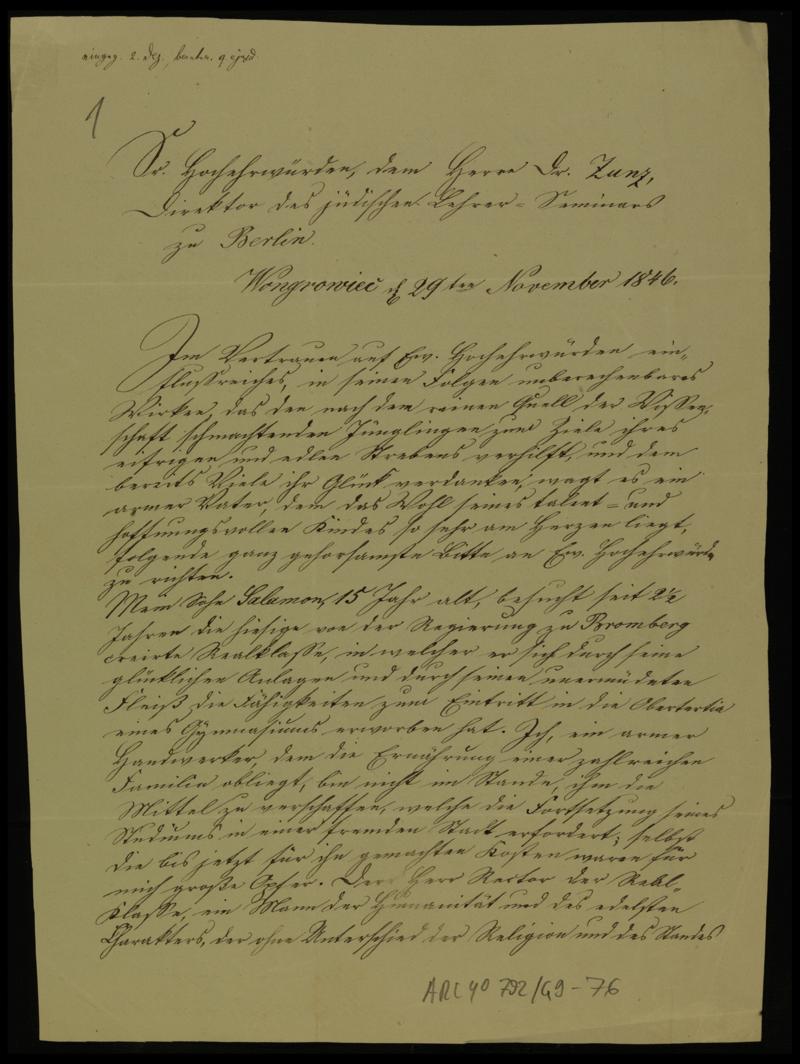 eingeg. 2. Dez., beantw. 9 ejusd.
1
Sr. Hochehrwürden, dem Herrn Dr. Zunz,
Direktor des jüdischen Lehrer-Seminars
zu Berlin.
Wongrowiec d 29ten November 1846.
Im Vertrauen auf Ew. Hochehrwürden ein-
flussreiches, in seinen Folgen unberechenbares
Wirken, das den nach dem reinen Quell der Wissen-
schaft schmachtenden Jünglingen zum Ziele ihres
eifrigen und edlen Strebens verhilft, und dem
bereits Viele ihr Glück verdanken, wagt es ein
armer Vater, dem das Wohl seines talent- und
hoffnungsvollen Kindes so sehr am Herzen liegt,
folgende ganz gehorsamste Bitte an Ew. Hochehrwürde
zu richten.
Mein Sohn Salamon, 15 Jahr alt, besucht seit 2½
Jahren die hiesige von der Regierung zu Bromberg
creirte Realklasse, in welcher er sich durch seine
glücklichen Anlagen und durch seinen unermüdeten
Fleiß die Fähigkeiten zum Eintritt in die Obertertia
eines Gymnasiums erworben hat. Ich, ein armer
Handwerker, dem die Ernährung einer zahlreichen
Familie obliegt, bin nicht im Stande, ihm die
Mittel zu verschaffen, welche die Fortsetzung seines
Studiums in einer fremden Stadt erfordert; selbst
die bis jetzt für ihn gemachten Kosten waren für
mich große Opfer. Der Herr Rector der Real-
Klasse, ein Mann der Humanität und des edelsten
Charakters, der ohne Unterschied der Religion und des Standes
ARC 4° 792/G9-76